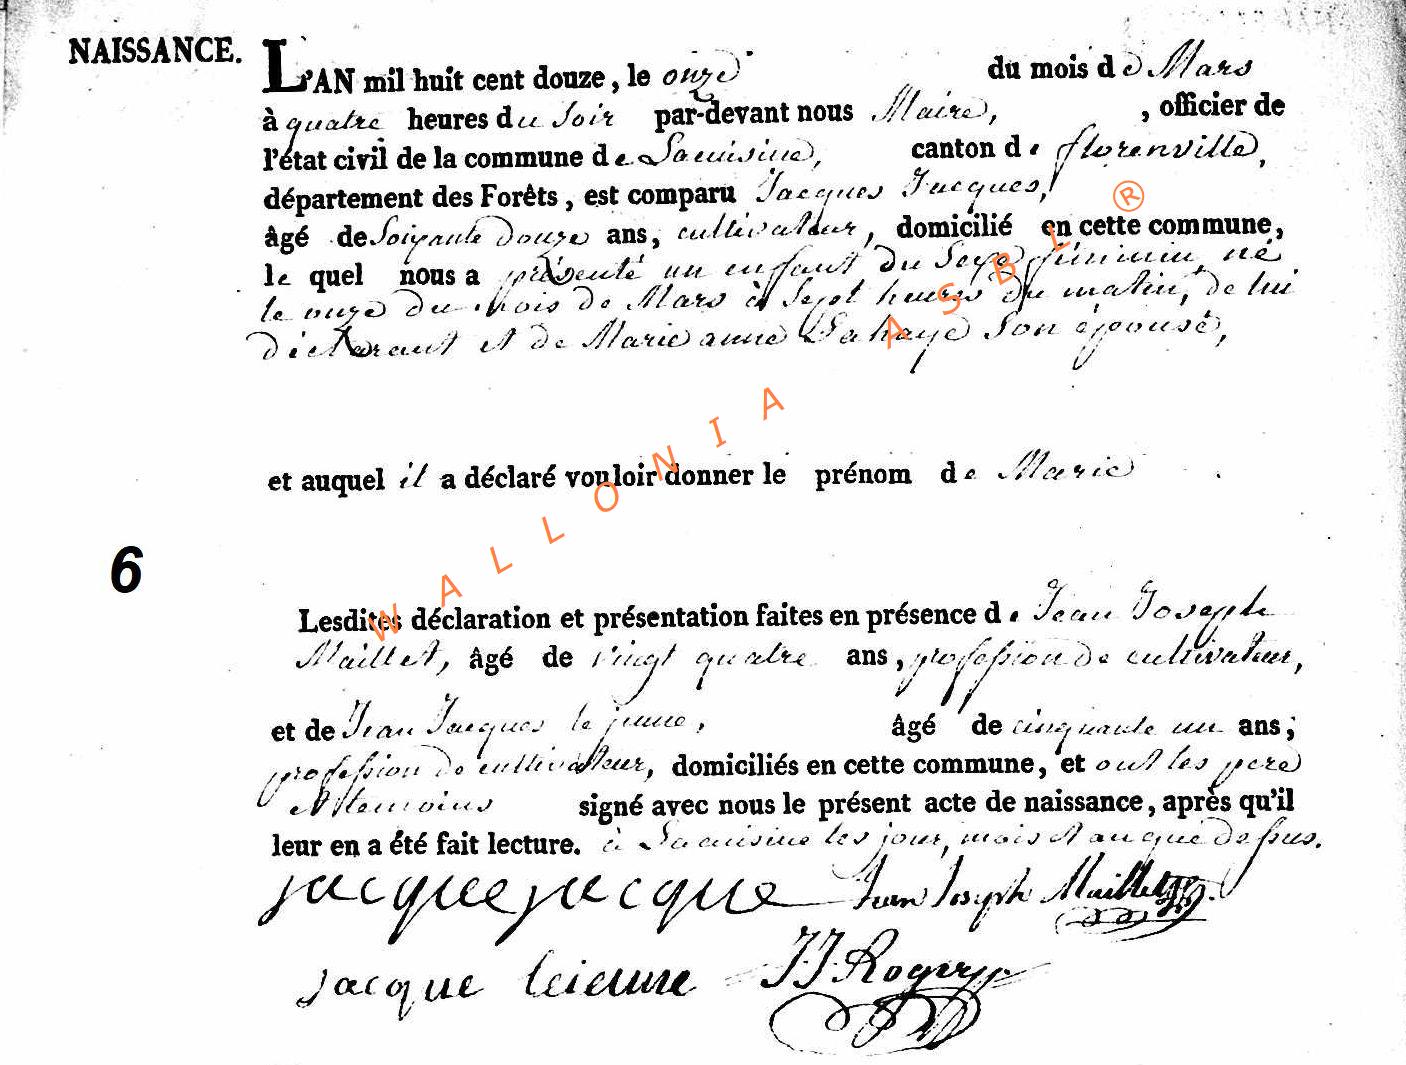 NAISSANCE.
L'AN mil huit cent douze, le onze du mois de Mars
à quatre heures du soir par-devant nous Maire, , officier de
l'état civil de la commune de Lacuisine, canton de florenville,
département des Forêts, est comparu Jacques Jacques,
âgé de Soixante douze ans, cultivateur, domicilié en cette commune,
le quel nous a présenté un enfant du Sexe féminin, né
le onze du mois de Mars à Sept heures du matin, de lui
déclarant et de Marie anne Lahaye Son épouse,
et auquel il a déclaré vouloir donner le prénom de Marie
6
Lesdites déclaration et présentation faites en présence de Jean Joseph
Maillet, âgé de vingt quatre ans, profession de cultivateur,
et de Jean Jacques le jeune, âgé de cinquante un ans;
profession de cultivateur, domiciliés en cette commune, et ont les pere
et temoins signé avec nous le présent acte de naissance, après qu'il
leur en a été fait lecture. à Lacuisine les jour, mois et an que dessus.
jacque jacque Jean Joseph Maillet
jacque leieune JJ Roger
WALLONIA ASBL ®